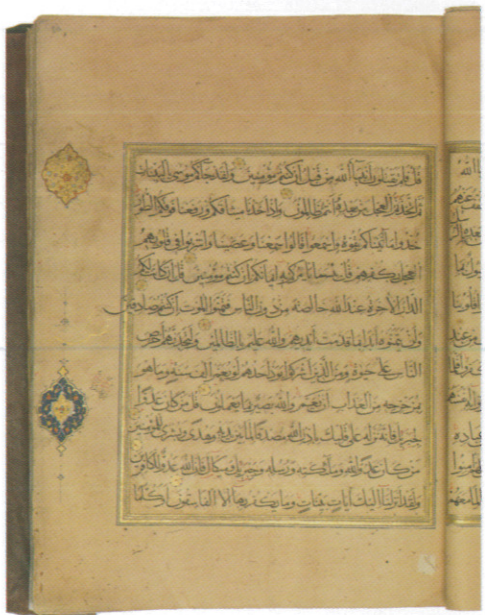 قل فلم تقتلون أنبياء الله من قبل إن كنتم مؤمنين ولقد جاءكم موسى بالبينات
ثم اتخذتم العجل من بعده وأنتم ظالمون وإذ أخذنا ميثاقكم ورفعنا فوقكم الطور
خذوا ما آتيناكم بقوة واسمعوا قالوا سمعنا وعصينا وأشربوا في قلوبهم
العجل بكفرهم قل بئسما يأمركم به إيمانكم إن كنتم مؤمنين قل إن كانت لكم
الدار الآخرة عند الله خالصة من دون الناس فتمنوا الموت إن كنتم صادقين
ولن يتمنوه أبدا بما قدمت أيديهم والله عليم بالظالمين ولتجدنهم أحرص
الناس على حيوة ومن الذين أشركوا يود أحدهم لو يعمر ألف سنة وما هو
بمزحزحه من العذاب أن يعمر والله بصير بما يعملون قل من كان عدوا
لجبريل فإنه نزله على قلبك بإذن الله مصدقا لما بين يديه وهدى وبشرى للمؤمنين
من كان عدوا لله وملائكته ورسله وجبريل وميكال فإن الله عدو للكافرين
ولقد أنزلنا إليك آيات بينات وما يكفر بها إلا الفاسقون أوكلما